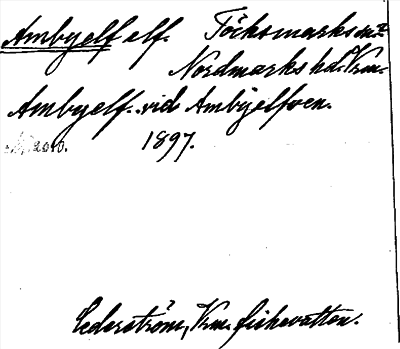 Ambyelf elf. Töcksmarks sn
Nordmarks hd. Vrm.
Ambyelf vid Ambyelfven.
2010. 1897.
Cederström, Vrm. fiskevatten.